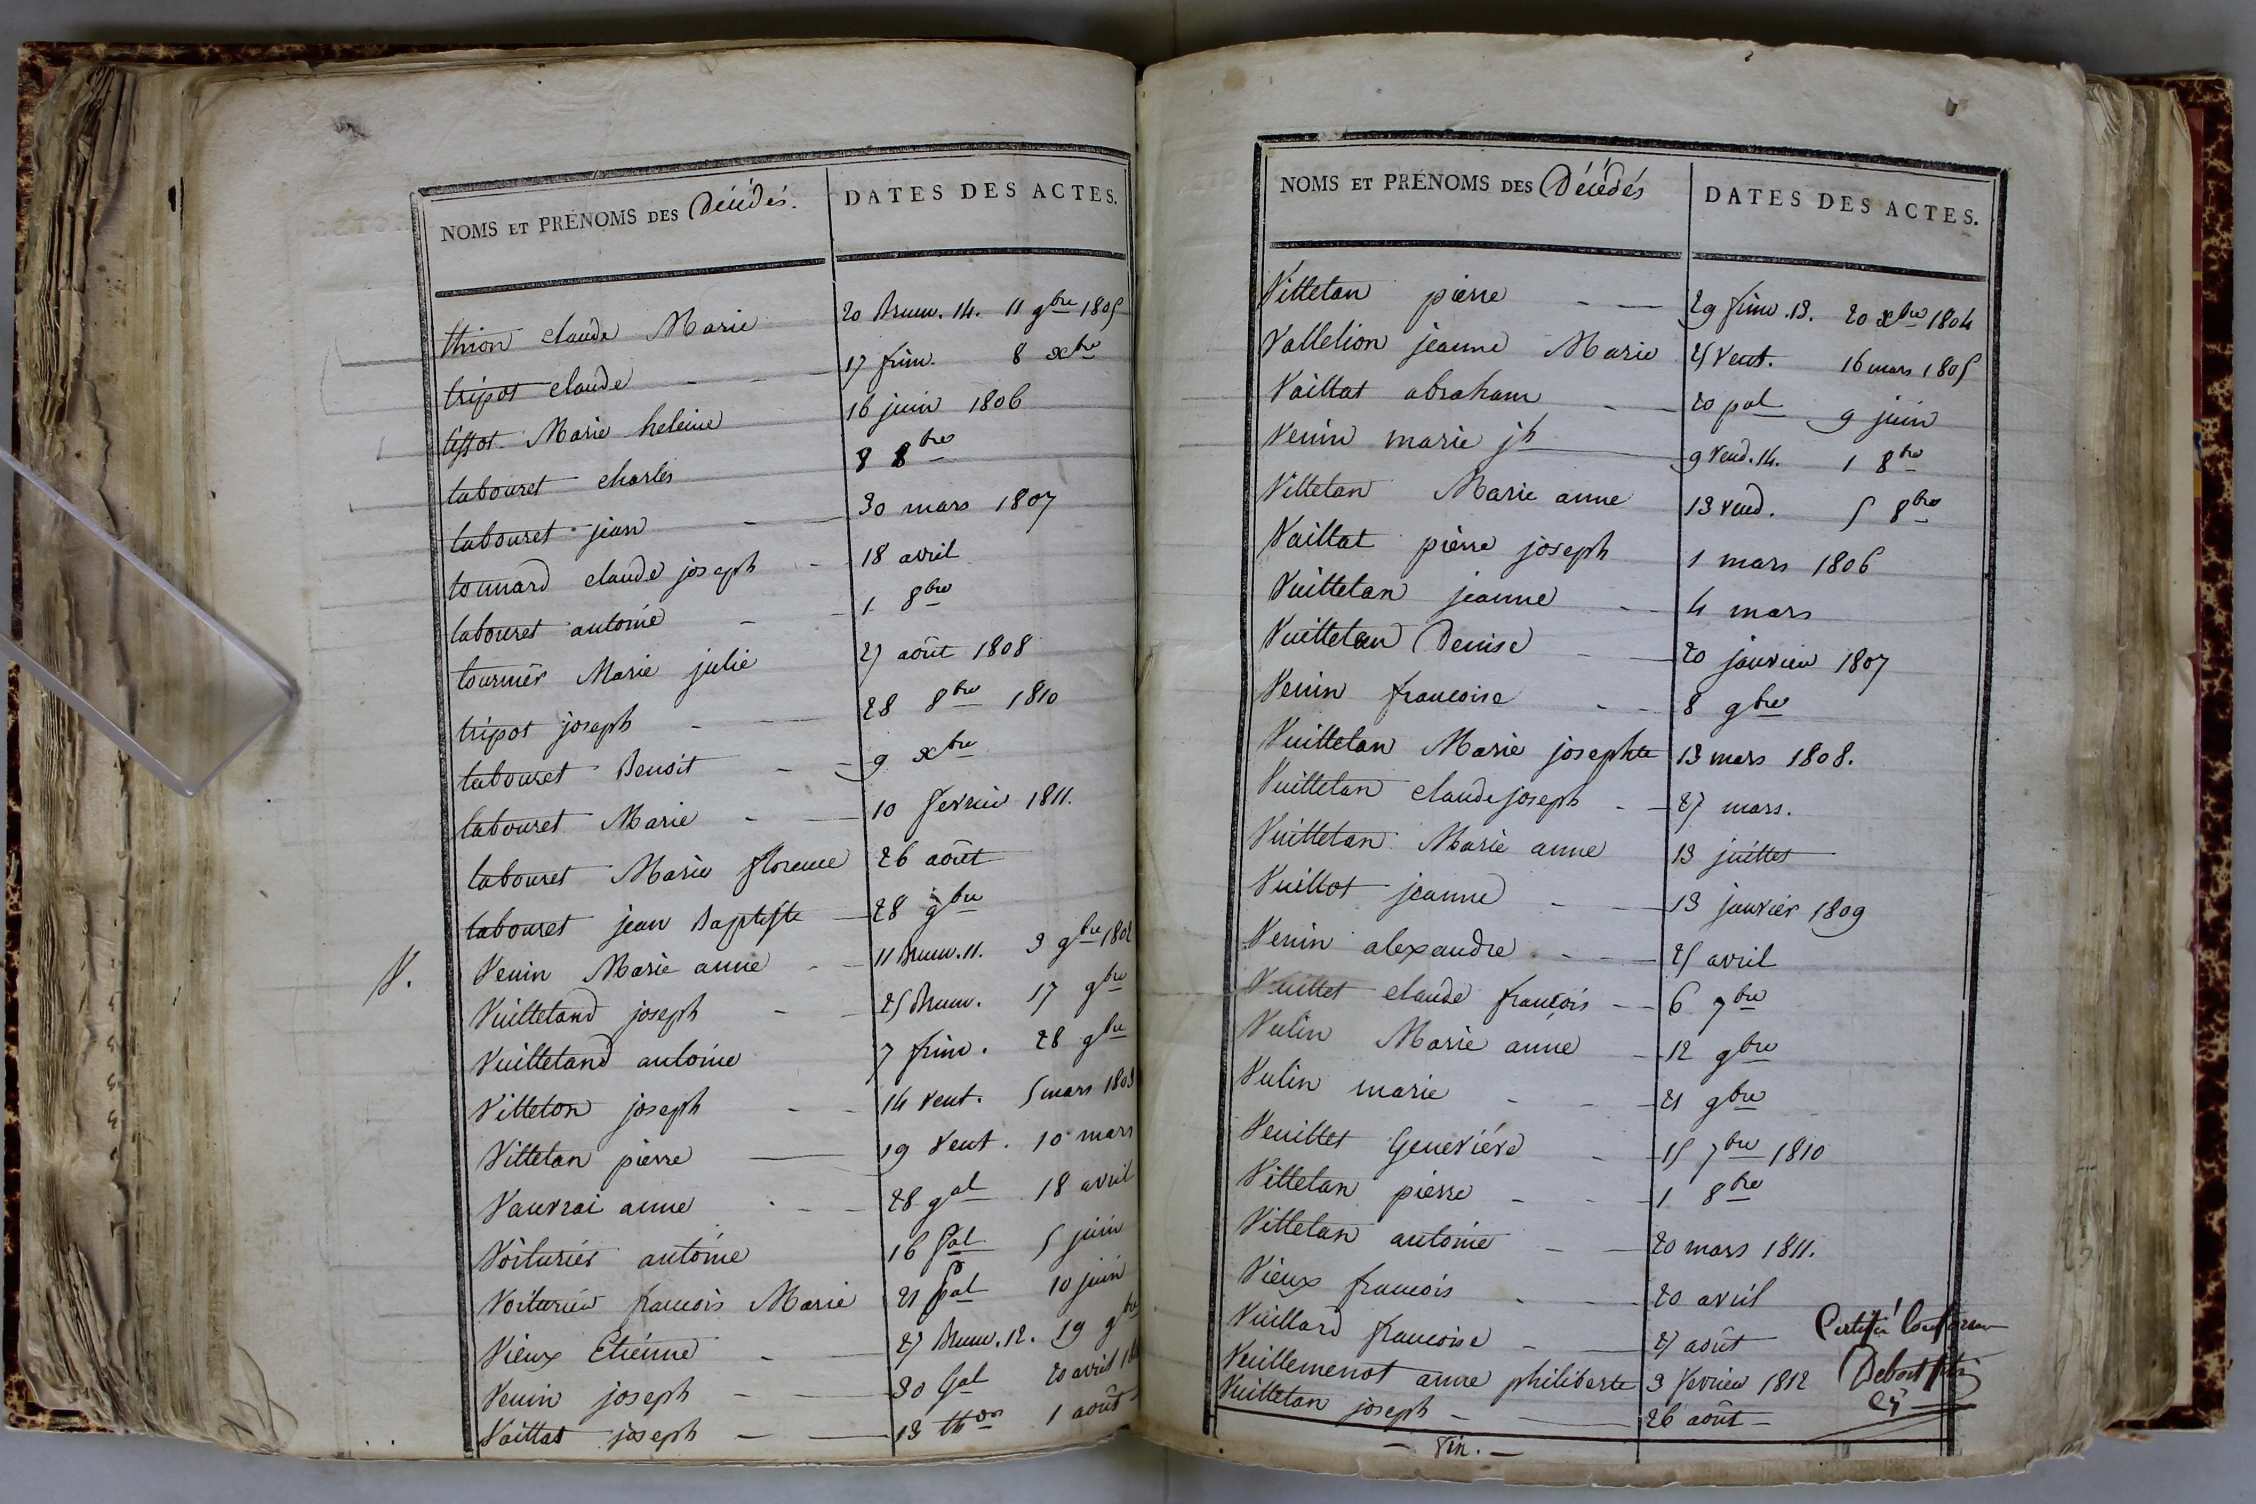 NOMS ET PRÉNOMS DES Décédés. DATES DES ACTES.
thion claude Marie 20 Brum. 14. 11 9bre 1805
tripot claude - - 17 frim. 8 xbre
tissot Marie heleine 16 juin 1806
labouret charles 8 8bre
labouret jean - - 30 mars 1807
tonnard claude joseph - 18 avril
labouret antoine - - 1 8bre
tournier Marie julie 27 août 1808
tripot joseph - - 28 8bre 1810
labouret Benoit - - 9 xbre
labouret Marie - - 10 fevrier 1811.
labouret Marie florence 26 août
labouret jean Baptiste - 28 9bre
V. Venin Marie anne - - 11 Brum. 11. 2 9bre 1802
Vuilletand joseph - - 25 Brum. 17 9bre
Vuilletand antoine 7 frim. 28 9bre
Villeton joseph - - 14 vent. 5 mars 1803
Villetan pierre - 19 vent. 10 mars
Vauvrai anne - - - 28 gal 18 avril
Voiturier antoine 16 pal 5 juin
Voiturier francois Marie 21 pal 10 juin
Vieux Etienne - - 27 Brum. 12. 19 9bre
Venin joseph - - 30 Gal 20 avril
Vaillat joseph - - 13 thor 1 août
NOMS ET PRÉNOMS DES Décédés DATES DES ACTES.
Villetan pierre - - 29 frim. 13. 20 xbre 1804
Valletion jeanne Marie 25 Vent. 16 mars 1805
Vaillat abraham - - 20 pal 9 juin
Venin marie jh 9 Vend. 14. 1 8bre
Villetan Marie anne 13 vend. 5 8bre
Vaillat pierre joseph 1 mars 1806
Vuilletan jeanne - - 4 mars
Vuilletan Denise - - 20 janvier 1807
Venin francoise - - 8 9bre
Vuilletan Marie josephte 13 mars 1808.
Vuilletan claude joseph - - 27 mars.
Vuilletan Marie anne 13 juillet
Vuillot jeanne - - 13 janvier 1809
Venin alexandre - - - 25 avril
Vuillet claude françois - - 6 7bre
Vulin Marie anne - 12 9bre
Vulin marie - - - 21 9bre
Veuillet Geneviéve - - 15 7bre 1810
Villetan pierre - - - 1 8bre
Villetan antoine - - 20 mars 1811.
Vieux francois - - - 20 avril
Vuillard francoise - - 27 août Certifié Conforme
Vuillemenot anne philiberte 3 fevrier 1812
Vuilletan joseph - - 26 août -
- fin. -